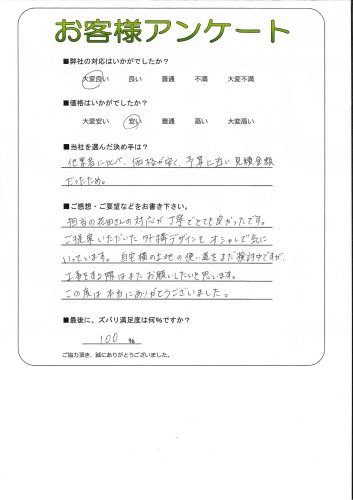 お客様アンケート
■弊社の対応はいかがでしたか?
大変良い 良い 普通 不満 大変不満
■価格はいかがでしたか?
大変安い 安い 普通 高い 大変高い
■当社を選んだ決め手は?
他業者に比べ、価格が安く、予算に近い見積金額
だったため。
■ご感想・ご要望などをお書き下さい。
担当の花田さんの対応が丁寧でとても良かったです。
ご提案いただいた外構デザインもオシャレで気に
いっています。自宅横の土地の使い道をまだ検討中ですが、
工事をする際はまたお願いしたいと思います。
この度は本当にありがとうございました。
■最後に、ズバリ満足度は何%ですか?
100 %
ご協力頂き、誠にありがとうございました。